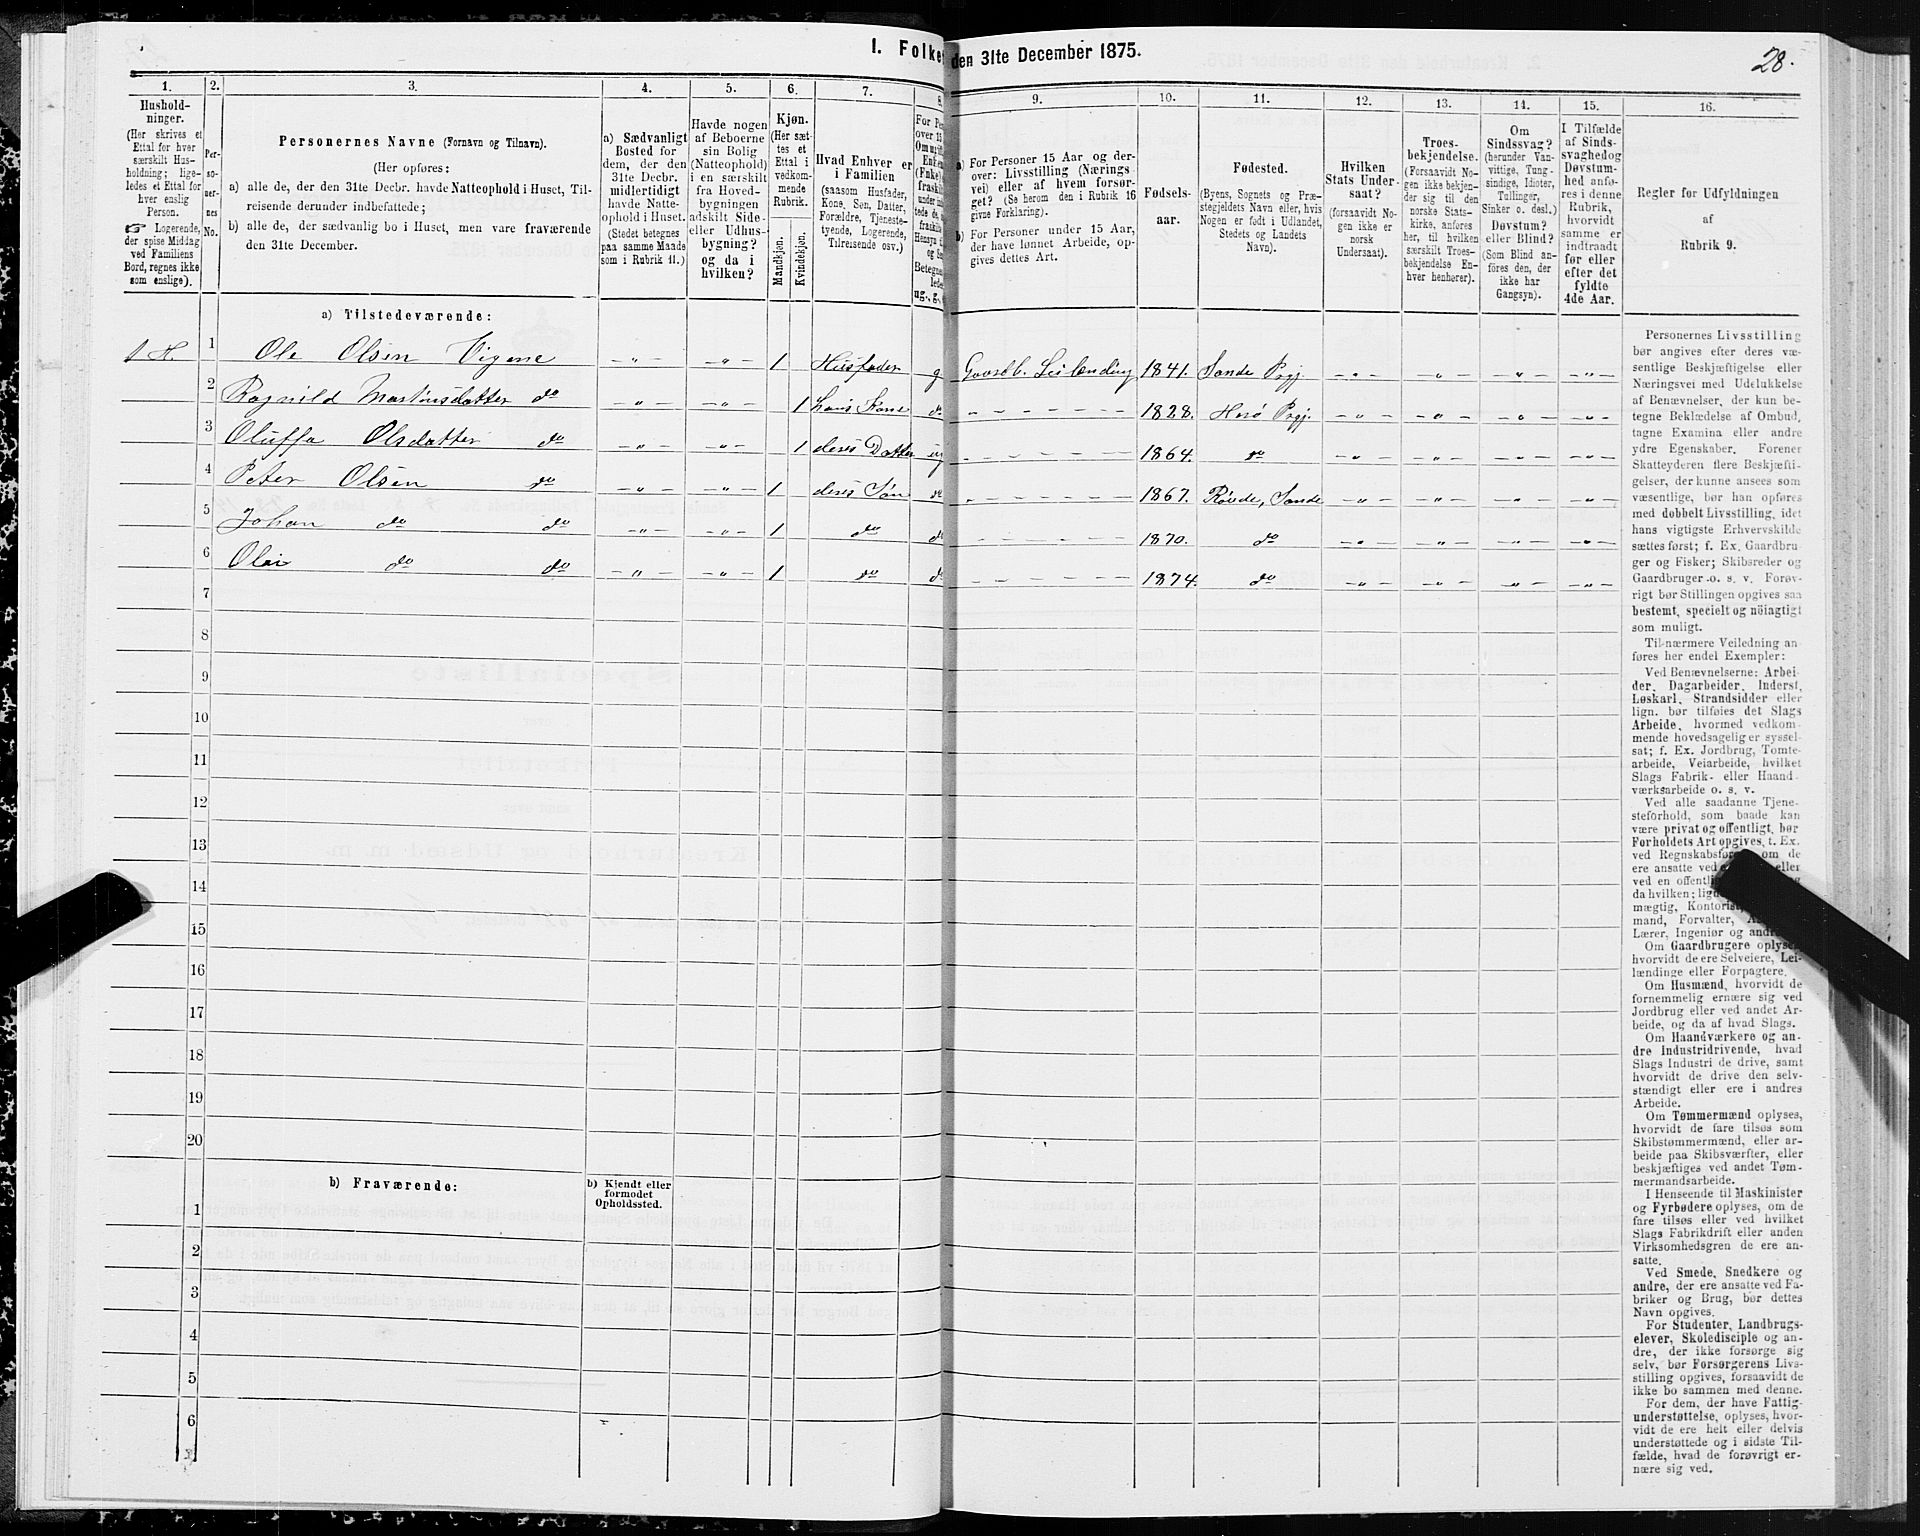 1. Folke den 31te December 1875.
28.
1. 2. 3. 4. 5. 6. 7. 8. 9. 10. 11. 12. 13. 14. 15. 16.
Hushold-
ninger.
(Her skrives et
Ettal for hver
særskilt Hus-
holdning; lige-
ledes et Ettal for
hver enslig
Person.
☞ Logerende,
der spise Middag
ved Familiens
Bord, regnes ikke
som enslige).
Per-
so-
ner-
nes
No.
Personernes Navne (Fornavn og Tilnavn).
(Her opføres:
a) alle de, der den 31te Decbr. havde Natteophold i Huset, Til-
reisende derunder indbefattede;
b) alle de, der sædvanlig bo i Huset, men vare fraværende
den 31te December.
a) Sædvanligt
Bosted for
dem, der den
31te Decbr.
midlertidigt
havde Natte-
ophold i Huset.
(Stedet betegnes
paa samme Maade
som i Rubrik 11.)
Havde nogen
af Beboerne
sin Bolig
(Natteophold)
i en særskilt
fra Hoved-
bygningen
adskilt Side-
eller Udhus-
bygning?
og da i
hvilken?
Kjøn.
(Her sæt-
tes et
Ettal i
vedkom-
mende
Rubrik.
Mandkjøn.
Kvindekjøn.
Hvad Enhver er
i Familien
(saasom Husfader,
Kone, Søn, Datter,
Forældre, Tjeneste-
tyende, Logerende,
Tilreisende osv.)
a) For Personer 15 Aar og der-
over: Livsstilling (Nærings-
vei) eller af hvem forsør-
get? (Se herom den i Rubrik 16
givne Forklaring).
b) For Personer under 15 Aar,
der have lønnet Arbeide, op-
gives dettes Art.
Fødsels-
aar.
Fødested.
(Byens, Sognets og Præ-
stegjeldets Navn eller, hvis
Nogen er født i Udlandet,
Stedets og Landets
Navn).
Hvilken
Stats Under-
saat?
(forsaavidt No-
gen ikke er
norsk
Undersaat).
Troes-
bekjendelse.
(Forsaavidt No-
gen ikke bekjen-
der sig til den
norske Stats-
kirke, anføres
her, til hvilken
særskilt Troes-
bekjendelse En-
hver henhører).
Om
Sindssvag?
(herunder Van-
vittige, Tung-
sindige, Idioter,
Tullinger,
Sinker o. desl.)
Døvstum?
eller Blind?
(Som Blind an-
føres den, der
ikke har
Gangsyn).
I Tilfælde
af Sinds-
svaghed og
Døvstum-
hed anfø-
res i denne
Rubrik,
hvorvidt
samme er
indtraadt
før eller
efter det
fyldte
4de Aar.
Regler for Udfyldningen
af
Rubrik 9.
a) Tilstedeværende:
1 H. 1 Ole Olsen Vigene -„- -„- 1 Husfader g Gaardb. Leilænding 1841. Sande Prgj. -„- -„- -„- -„-
2 Ragnild Mastinsdatter do -„- -„- 1 hans Kone do -„- 1828. Herø Prgj. -„- -„- -„- -„-
3 Oluffa Olsdatter do -„- -„- 1 deres Datter ug -„- 1864. do -„- -„- -„- -„-
4 Peter Olsen do -„- -„- 1 deres Søn do -„- 1867. Røvde, Sande -„- -„- -„- -„-
5 Johan do do -„- -„- 1 do do -„- 1870. do -„- -„- -„- -„-
6 Olai do do -„- -„- 1 do do -„- 1874. do -„- -„- -„- -„-
7
8
9
10
11
12
13
14
15
16
17
18
19
20
b) Fraværende:
b) Kjendt eller
formodet
Opholdssted.
1
2
3
4
5
6
Personernes Livsstilling
bør angives efter deres væ-
sentlige Beskjæftigelse eller
Næringsvei med Udelukkelse
af Benævnelser, der kun be-
tegne Beklædelse af Ombud,
tagne Examina eller andre
ydre Egenskaber. Forener
Skatteyderen flere Beskjæfti-
gelser, der kunne ansees som
væsentlige, bør han opføres
med dobbelt Livsstilling, idet
hans vigtigste Erhvervskilde
sættes først; f. Ex. Gaardbru-
ger og Fisker; Skibsreder og
Gaardbruger o. s. v. Forøv-
rigt bør Stillingen opgives saa
bestemt, specielt og nöiagtigt
som muligt.
Til nærmere Veiledning an-
føres her endel Exempler:
Ved Benævnelserne: Arbei-
der, Dagarbeider, Inderst,
Løskarl, Strandsidder eller
lign. bør tilføies det Slags
Arbeide, hvormed vedkom-
mende hovedsagelig er syssel-
sat; f. Ex. Jordbrug, Tomte-
arbeide, Veiarbeide, hvilket
Slags Fabrik- eller Haand-
værksarbeide o. s. v.
Ved alle saadanne Tjene-
steforhold, som baade kan
være privat og offentligt, bør
Forholdets Art opgives, t. Ex.
ved Regnskabsfør om de
ere ansatte ved eller
ved en offentlig
da hvilken;
mægtig, Kontorist,
mand, Forvalter,
Lærer, Ingeniør og andre
Om Gaardbrugere oplyses,
hvorvidt de ere Selveiere, Lei-
lændinge eller Forpagtere.
Om Husmænd, hvorvidt de
fornemmelig ernære sig ved
Jordbrug eller ved andet Ar-
beide, og da af hvad Slags.
Om Haandværkere og an-
dre Industridrivende, hvad
Slags Industri de drive, samt
hvorvidt de drive den selv-
stændigt eller ere i andres
Arbeide.
Om Tømmermænd oplyses,
hvorvidt de fare tilsøs som
Skibstømmermænd, eller ar-
beide paa Skibsværfter, eller
beskjæftiges ved andet Tøm-
mermandsarbeide.
I Henseende til Maskinister
og Fyrbødere oplyses, om de
fare tilsøs eller ved hvilket
Slags Fabrikdrift eller anden
Virksomhedsgren de ere an-
satte.
Ved Smede, Snedkere og
andre, der ere ansatte ved Fa-
briker og Brug, bør dettes
Navn opgives.
For Studenter, Landbrugs-
elever, Skoledisciple og an-
dre, der ikke forsørge sig
selv, bør Forsørgerens Livs-
stilling opgives, forsaavidt de
ikke bo sammen med denne.
For dem, der have Fattig-
understøttelse, oplyses, hvor-
vidt de ere helt eller delvis
understøttede og i sidste Til-
fælde, hvad de forøvrigt er-
nære sig ved.